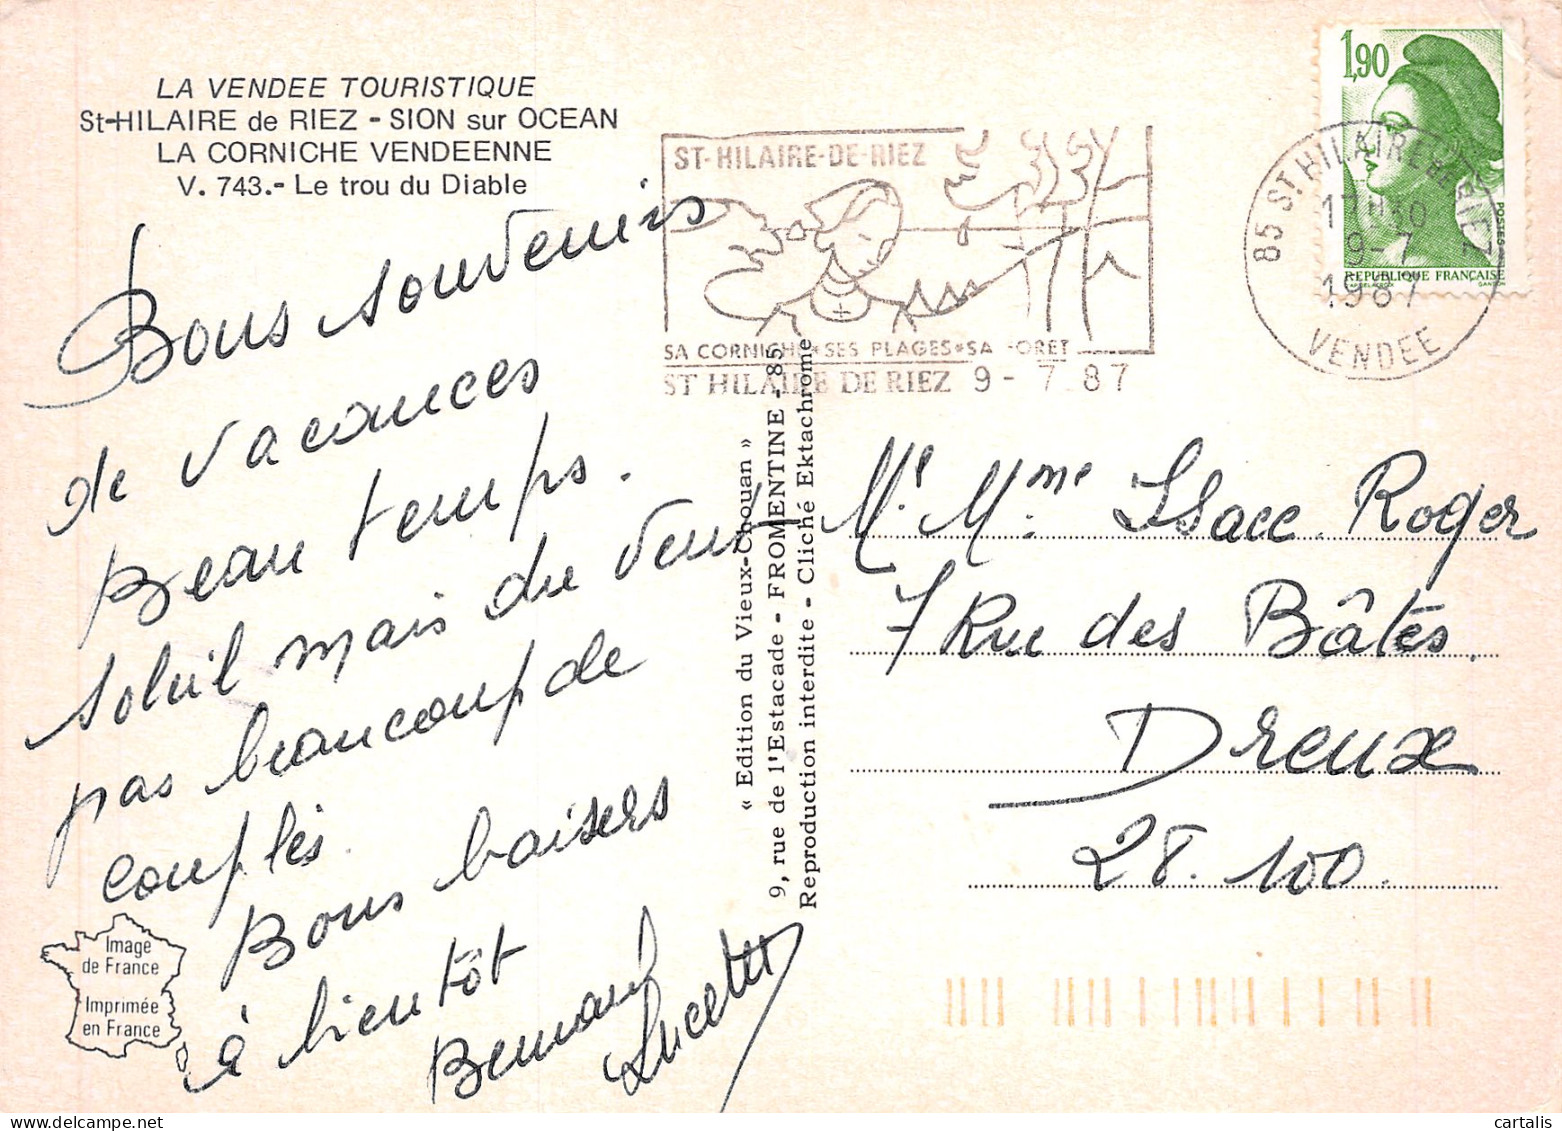 LA VENDEE TOURISTIQUE
St-HILAIRE de RIEZ - SION sur OCEAN
LA CORNICHE VENDEENNE
V. 743.- Le trou du Diable
Bons souvenirs
de vacances
Beau temps.
soleil mais du vent
pas beaucoup de
couples.
Bons baisers
à bientôt
Bernard
Lucette
Image
de France
Imprimée
en France
ST-HILAIRE-DE-RIEZ
SA CORNICHE*SES PLAGES*SA FORET
ST HILAIRE DE RIEZ 9 - 7 87
« Edition du Vieux-Chouan »
9, rue de l'Estacade - FROMENTINE - 85
Reproduction interdite - Cliché Ektachrome
1,90
POSTES
REPUBLIQUE FRANÇAISE
GANDON
85 ST HILAIRE DE RIEZ
17H30
9-7
1987
VENDEE
Mr. Mme. Isacc Roger
7 Rue des Bâtes.
Dreux
28.100.
www.delcampe.net
cartalis